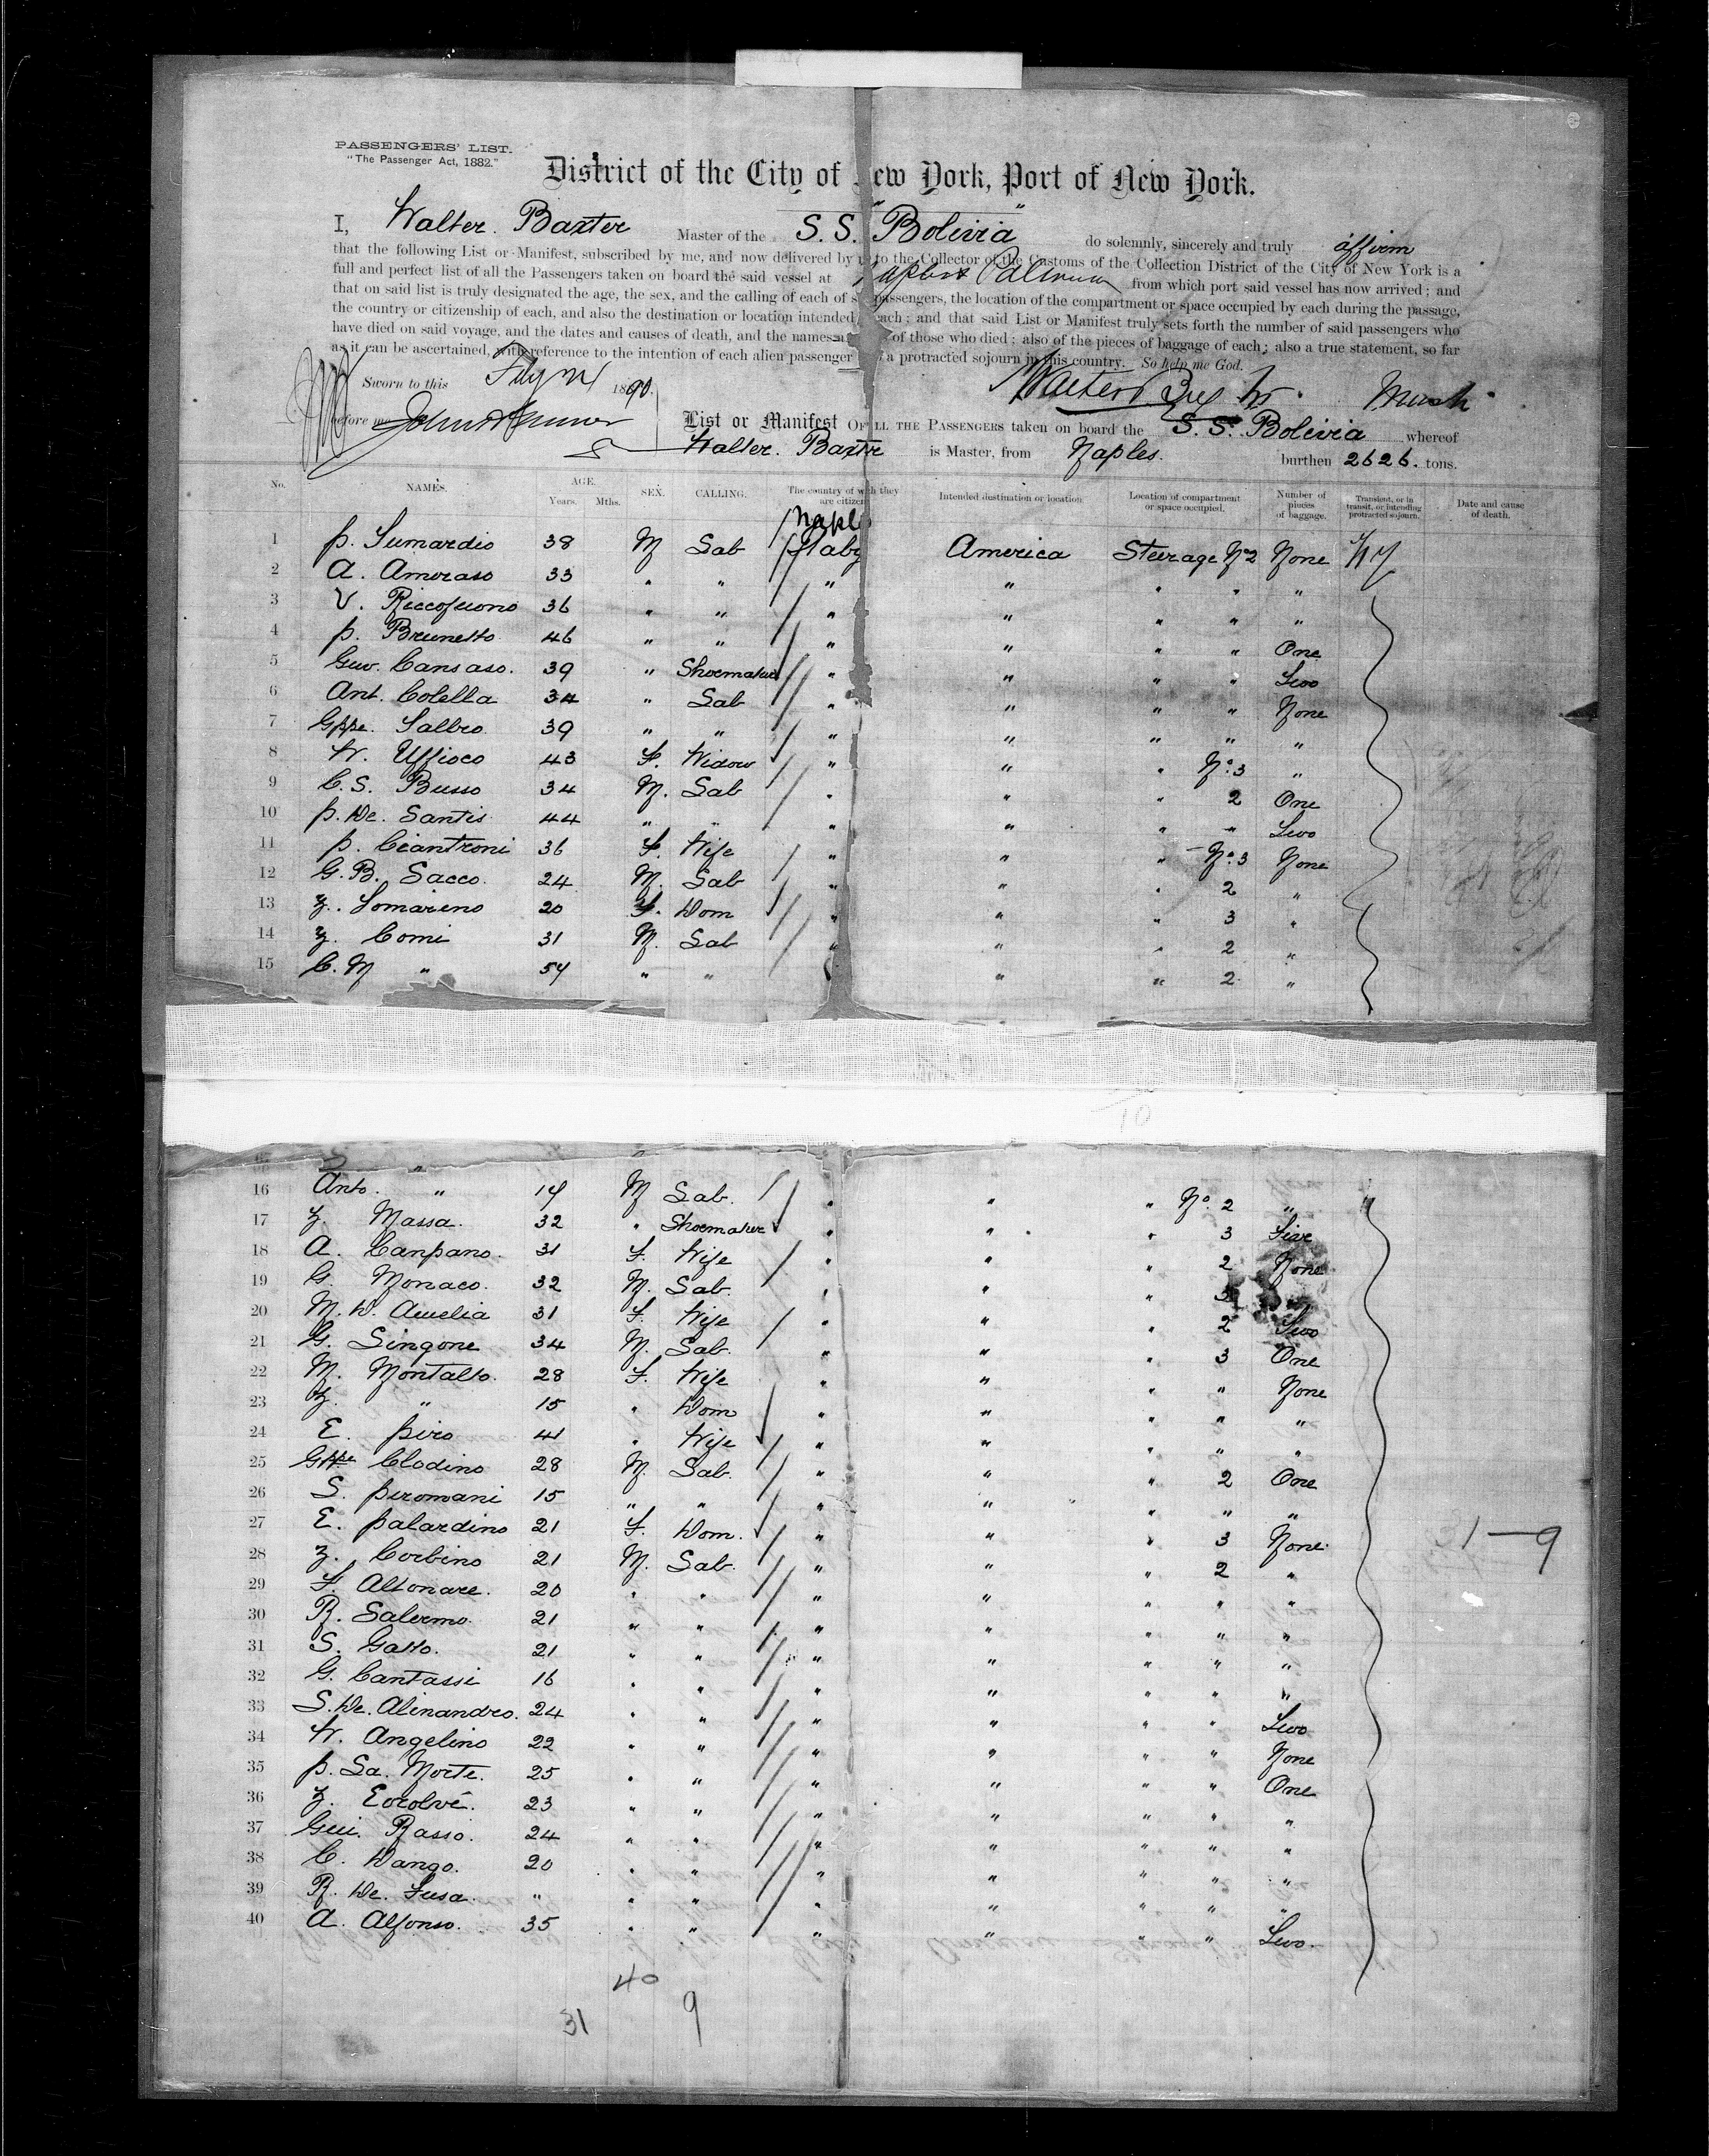 PASSENGERS' LIST.
"The Passenger Act, 1882."
District of the City of New York, Port of New York.
I, Walter. Baxter Master of the S.S. "Bolivia" do solemnly, sincerely and truly affirm
that the following List or Manifest, subscribed by me, and now delivered by to the Collector of the Customs of the Collection District of the City of New York is a
full and perfect list of all the Passengers taken on board the said vessel at from which port said vessel has now arrived; and
that on said list is truly designated the age, the sex, and the calling of each of passengers, the location of the compartment or space occupied by each during the passage,
the country or citizenship of each, and also the destination or location intended each; and that said List or Manifest truly sets forth the number of said passengers who
have died on said voyage, and the dates and causes of death, and the names of those who died; also of the pieces of baggage of each; also a true statement, so far
as it can be ascertained, with reference to the intention of each alien passenger a protracted sojourn in this country. So help me God.
Sworn to this 1890. Walter
before me List or Manifest OF ALL THE PASSENGERS taken on board the S.S. Bolivia whereof
Walter. Baxter is Master, from Naples. burthen 2626. tons.
No. NAMES. AGE. Years. Mths. SEX. CALLING. The country of which they are citizens Intended destination or location Location of compartment or space occupied. Number of pieces of baggage. Transient, or in transit, or intending protracted sojourn. Date and cause of death.
Naples
1 P. Sumardio 38 M Lab Italy America Steerage No 2 None NY
2 A. Amoraso 33 " " " " " " "
3 V. 36 " " " " " " "
4 P. Brunetto 46 " " " " " " One
5 Cansaso. 39 " Shoemaker " " " " Two
6 Ant. Colella 34 " Lab " " " " None
7 Gppe. Salbro 39 " " " " " " "
8 Uffioco 43 F. Widow " " " No. 3 "
9 C. S. Busso 34 M. Lab " " " 2 One
10 P. De. Santis 44 " " " " " " Two
11 P. Ciantroni 36 F. Wife " " " No. 3 None
12 G. B. Sacco. 24 M. Lab " " " 2 "
13 Lomareno 20 F. Dom " " " 3 "
14 Comi 31 M. Lab " " " 2 "
15 C. M " 54 " " " " 2 "
16 Anto. " 14 M Lab. " " " No. 2 "
17 Massa. 32 " Shoemaker " " " 3 Five
18 A. Canpano. 31 F. Wife " " " 2 None
19 G. Monaco. 32 M. Lab. " " " 3
20 M. D. Amelia 31 F. Wife " " " 2 Two
21 G. Lingone 34 M. Lab. " " " 3 One
22 M. Montalto. 28 F. Wife " " " " None
23 " 15 " Dom " " " " "
24 E. Piro 41 " Wife " " " " "
25 Gppe Clodino 28 M. Lab. " " " 2 One
26 S. Piromani 15 " " " " " " "
27 E. Palardino 21 F. Dom. " " " 3 None
28 Corbino 21 M. Lab. " " " 2 "
29 F. Altonare. 20 " " " " " " "
30 R. Salermo. 21 " " " " " " "
31 S. Gatto. 21 " " " " " " "
32 G. Cantassi 16 " " " " " " "
33 S. De. Alinandro. 24 " " " " " " Two
34 Angelino 22 " " " " " " None
35 P. La. Morte. 25 " " " " " " One
36 23 " " " " " " "
37 Rasso. 24 " " " " " " "
38 C. Dango. 20 " " " " " " "
39 R. De. " " " " " " " "
40 A. Alfonso. 35 " " " " " " Two.
31-9
40
31 9
10